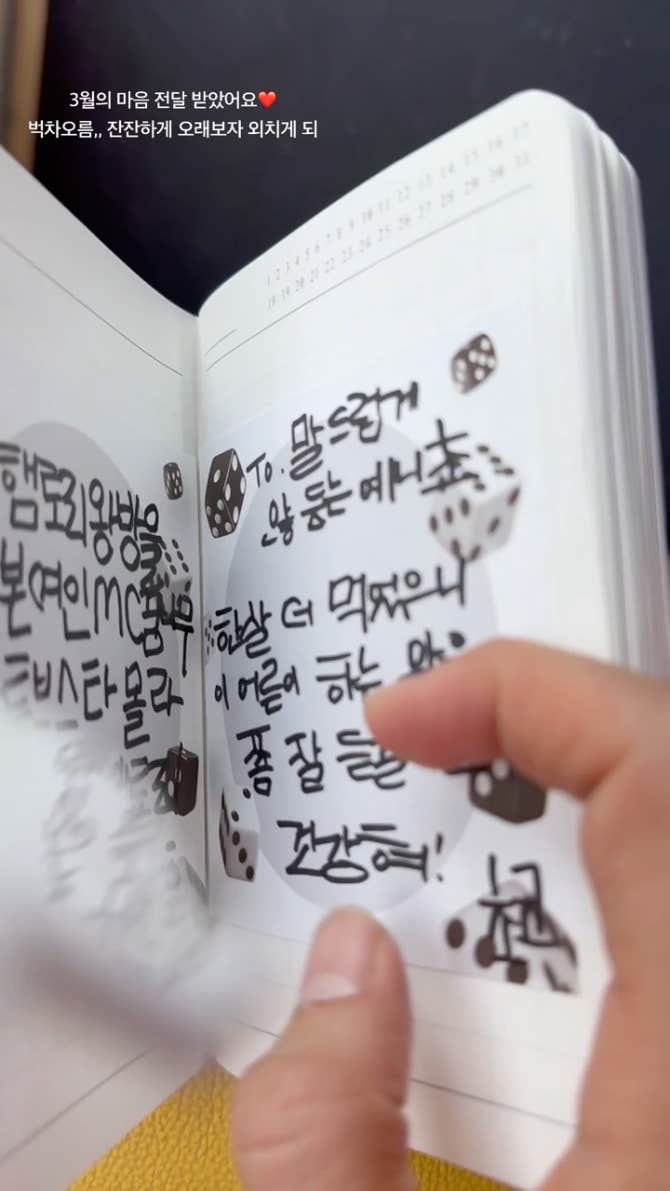 3월의 마음 전달 받았어요❤️
벅차오름,, 잔잔하게 오래보자 외치게 되
1 2 3 4 5 6 7 8 9 10 11 12 13 14 15 16 17
18 19 20 21 22 23 24 25 26 27 28 29 30 31
햄토리왕방울
본여인MC
트비스타몰라
To. 말드럽게
안 듣는 예니쵸
한살 더 먹었으니
이 어른이 하는
좀 잘
건강혀!